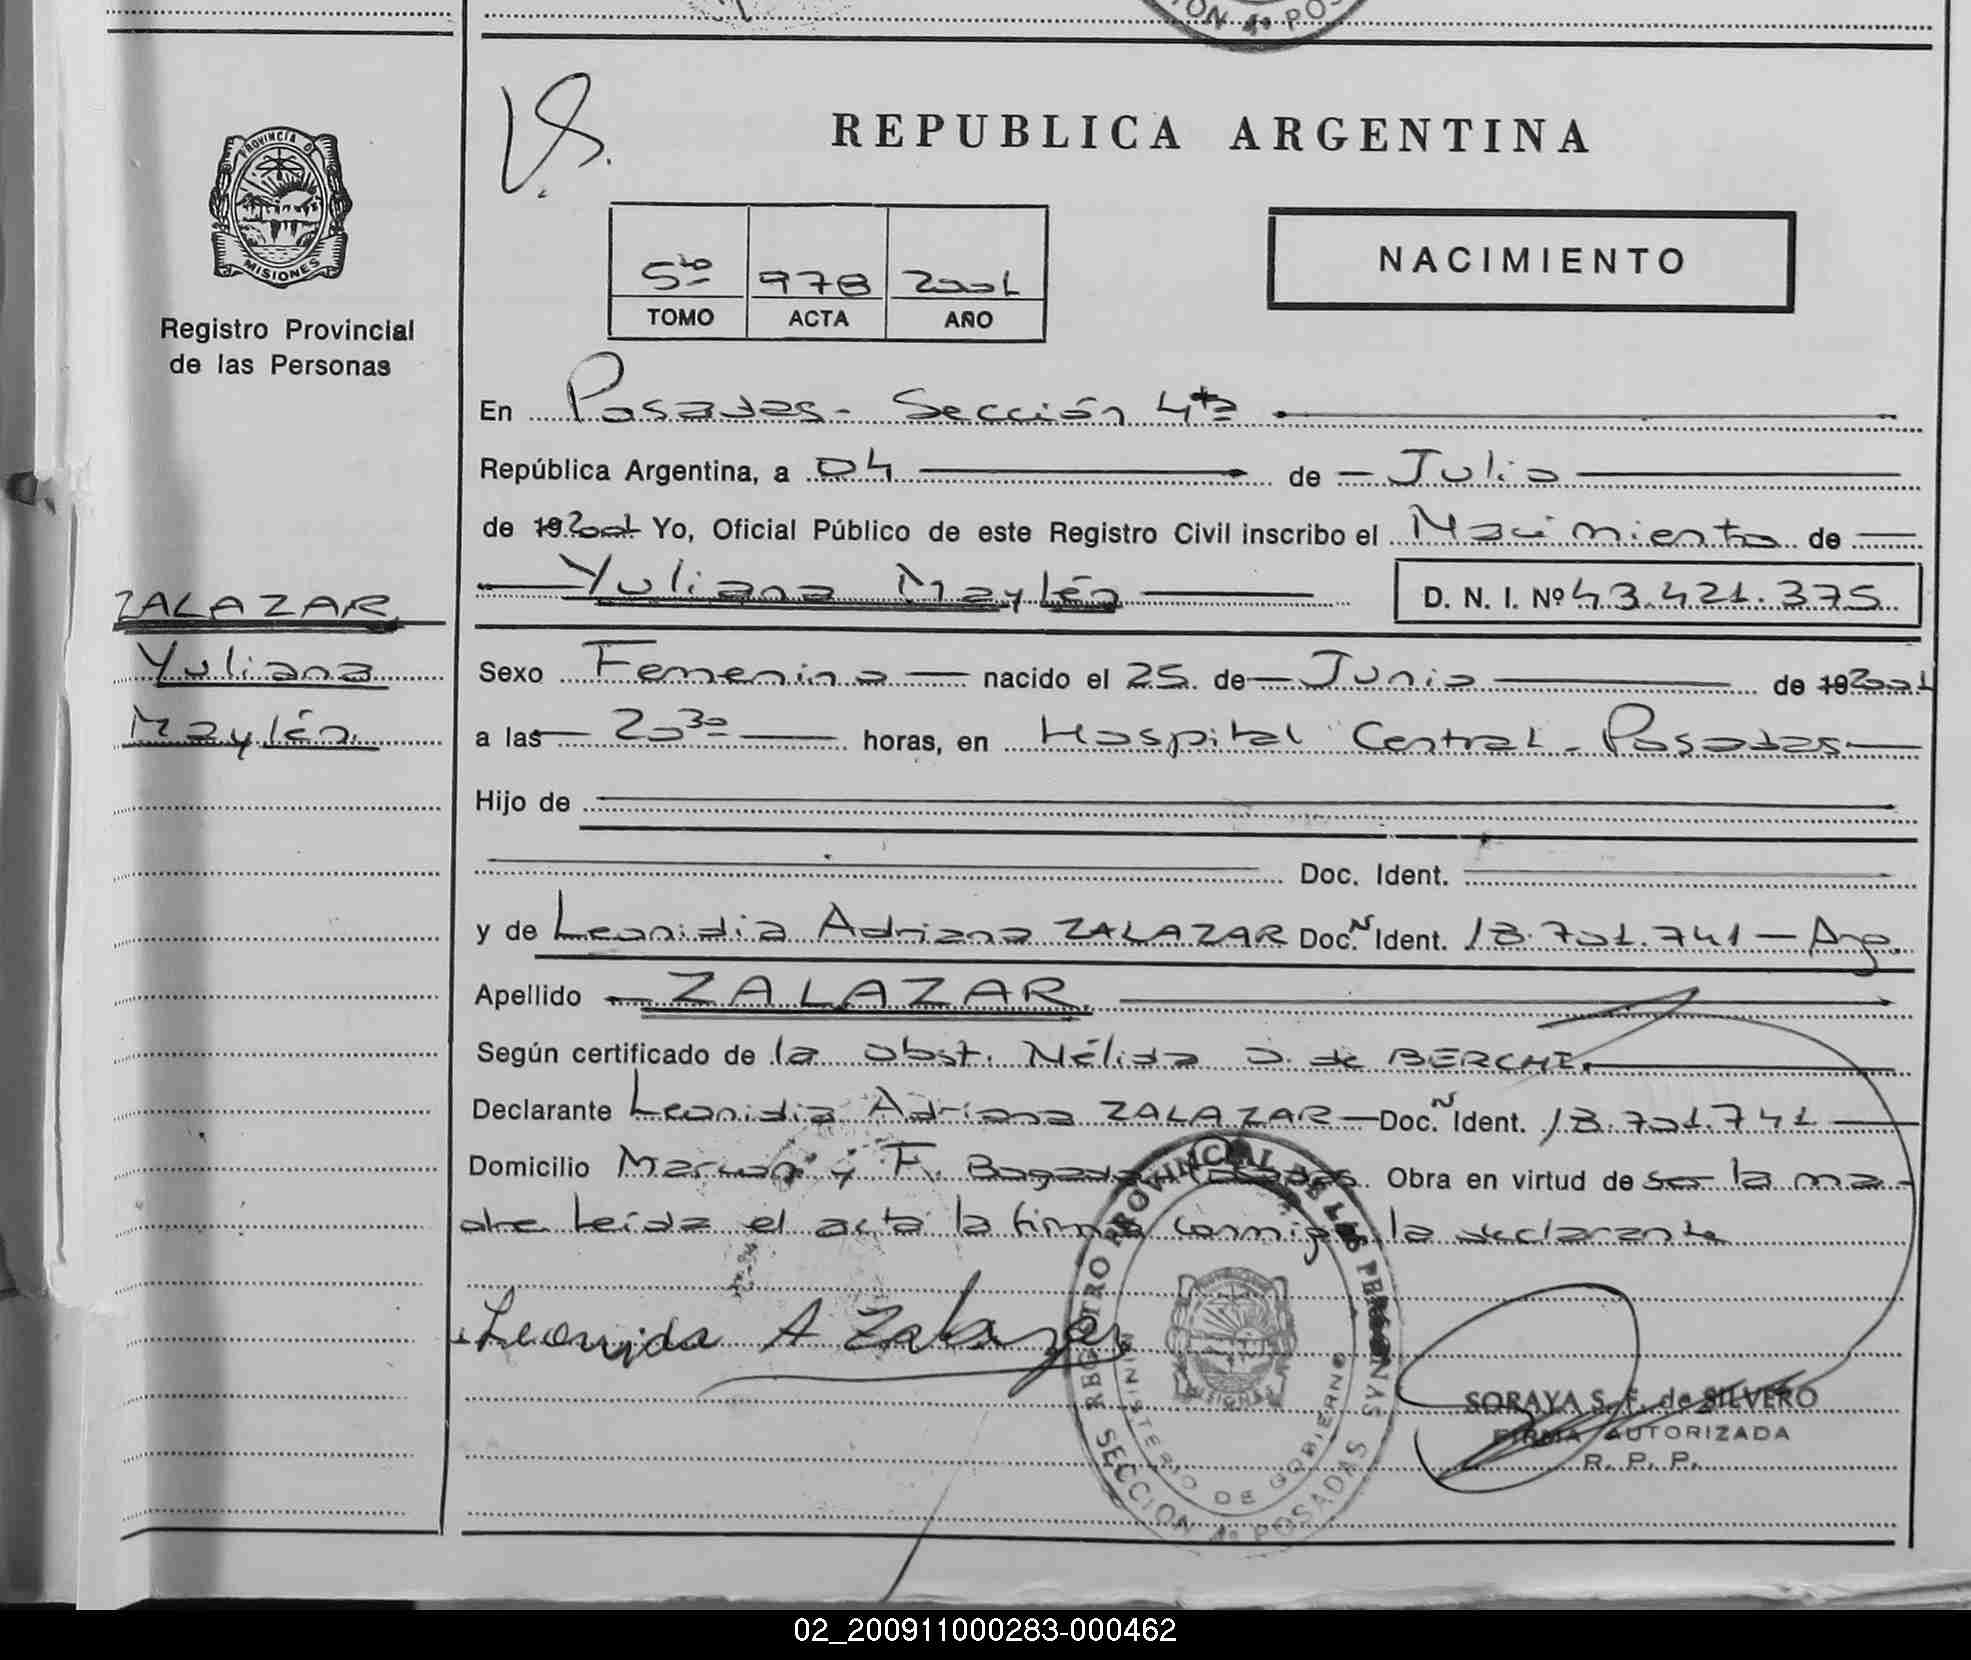 CION 4º POS
PROVINCIA D
MISIONES
Registro Provincial
de las Personas
ZALAZAR
Yuliana
Maylén
REPUBLICA ARGENTINA
5to 978 2001
TOMO ACTA AÑO
NACIMIENTO
En Posadas - Sección 4ta
República Argentina, a 04 de Julio
de 19 2001 Yo, Oficial Público de este Registro Civil inscribo el Nacimiento de
Yuliana Maylén D. N. I. Nº 43.421.375
Sexo Femenino nacido el 25 de Junio de 19 2001
a las 20 30 horas, en Hospital Central - Posadas
Hijo de
Doc. Ident.
y de Leonidia Adriana ZALAZAR Doc. N Ident. 18.701.741 - Arg.
Apellido ZALAZAR.
Según certificado de la obst. Nélida O. de BERCHI.
Declarante Leonidia Adriana ZALAZAR Doc. N Ident. 18.701.741
Domicilio y F. Obra en virtud de ser la ma-
dre Leída el acta la firma conmigo la declarante
Leonida A Zalazar
REGISTRO PROVINCIAL DE LAS PERSONAS
MINISTERIO DE GOBIERNO
MISIONES
SECCION 4º POSADAS
SORAYA S. F. de SILVERO
FIRMA AUTORIZADA
R. P. P.
02_200911000283-000462